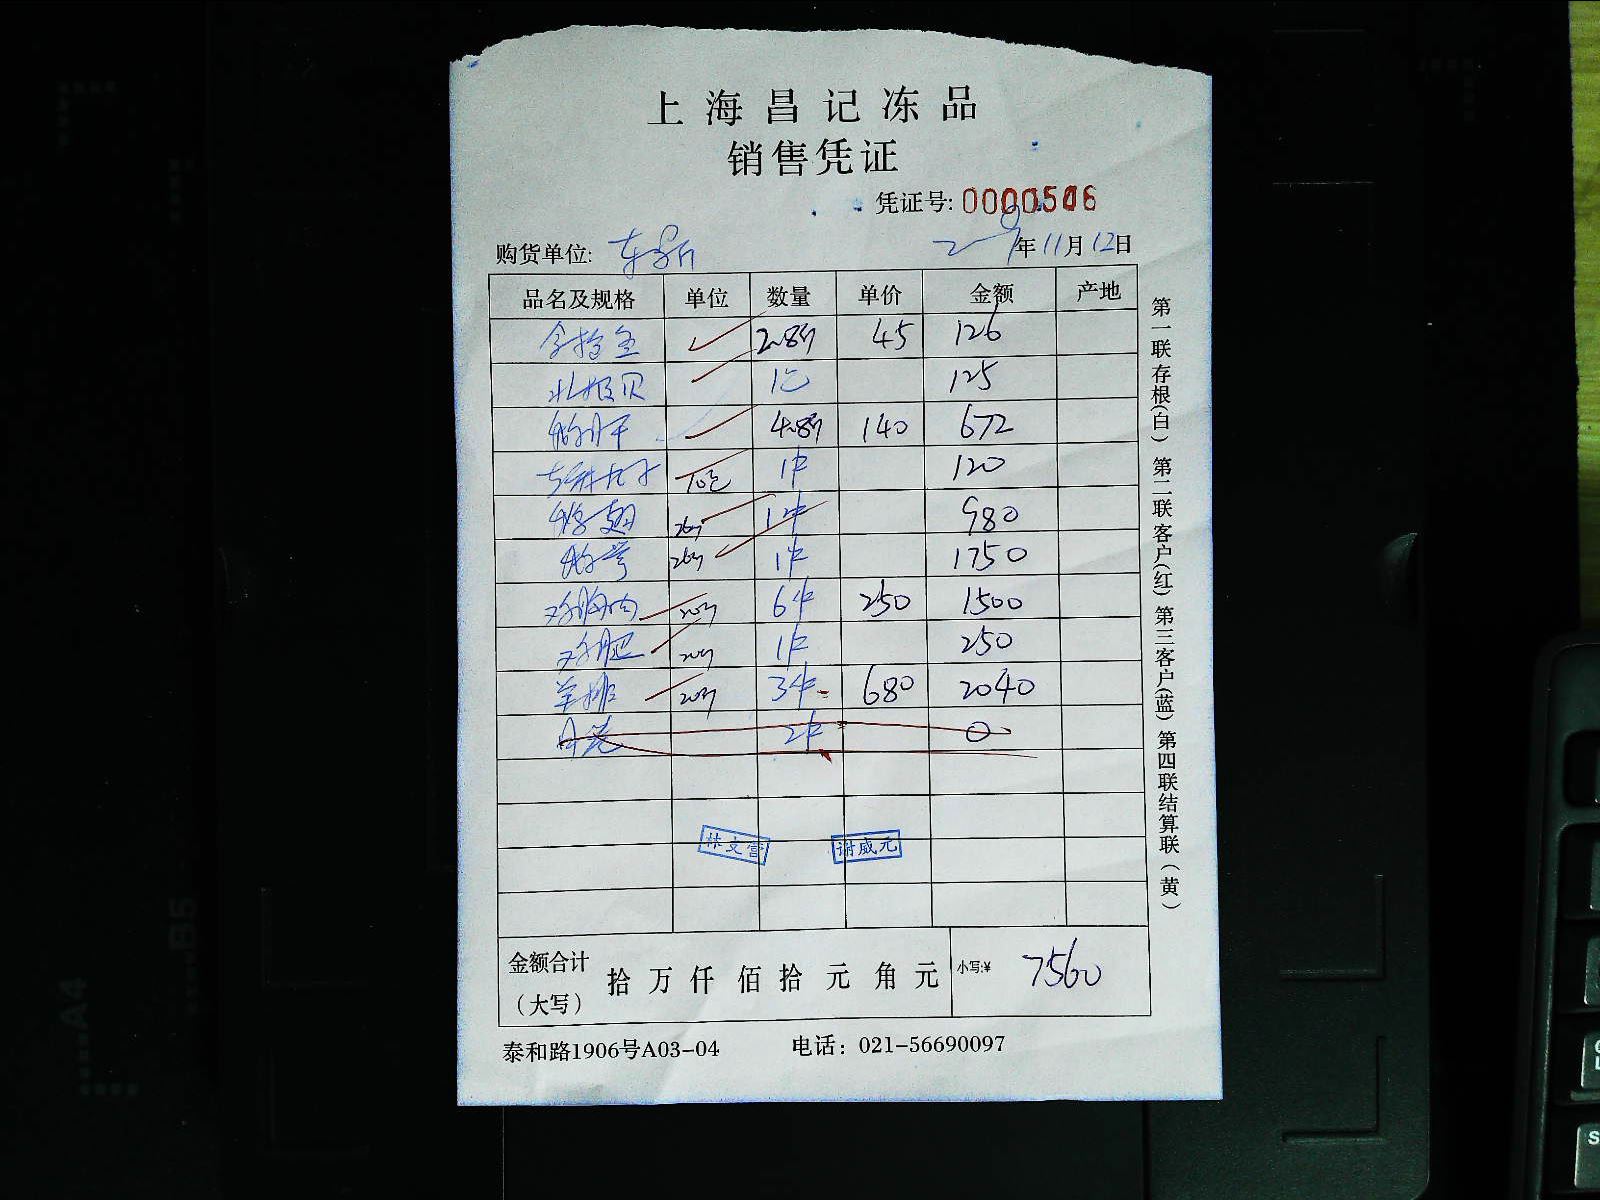 上海昌记冻品
销售凭证
凭证号: 0000506
购货单位: 年11月12日
品名及规格 单位 数量 单价 金额 产地
2.8斤 45 126
北极贝 1包 125
4.8斤 140 672
10包 1件 120
1件 980
1件 1750
鸡胸肉 20斤 6件 250 1500
20斤 1件 250
羊排 20斤 3件 680 2040
2件 0
林文雪 谢成元
金额合计
(大写)
拾万仟佰拾元角元 小写:¥ 7560
泰和路1906号A03-04 电话: 021-56690097
第一联存根(白) 第二联客户(红) 第三客户(蓝) 第四联结算联(黄)
A4
B5